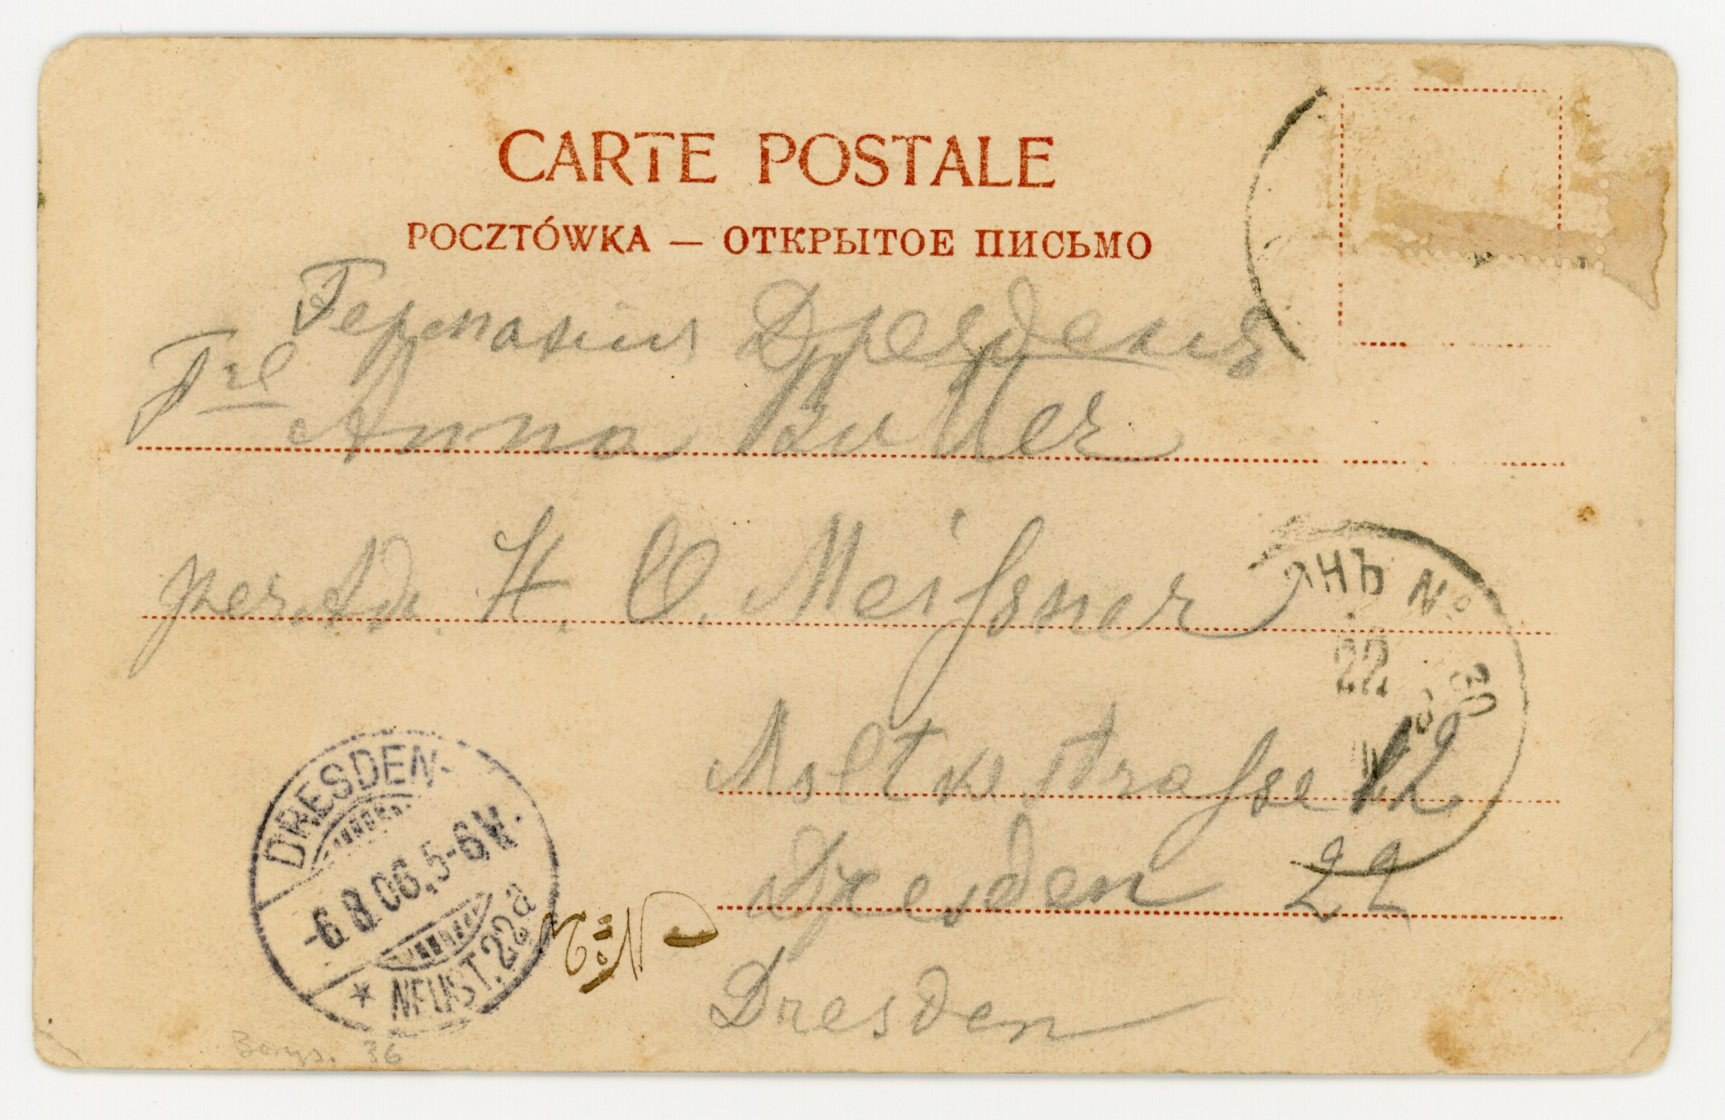 CARTE POSTALE
POCZTÓWKA — ОТКРЫТОЕ ПИСЬМО
Германія Дрезденъ
Frl Anna
per Adr. H. O. Meißner
Moltkestraße 12
Dresden 22
Dresden
НЪ №
22
DRESDEN-
-6.8.06.5-6N.
* NEUST.22d
36